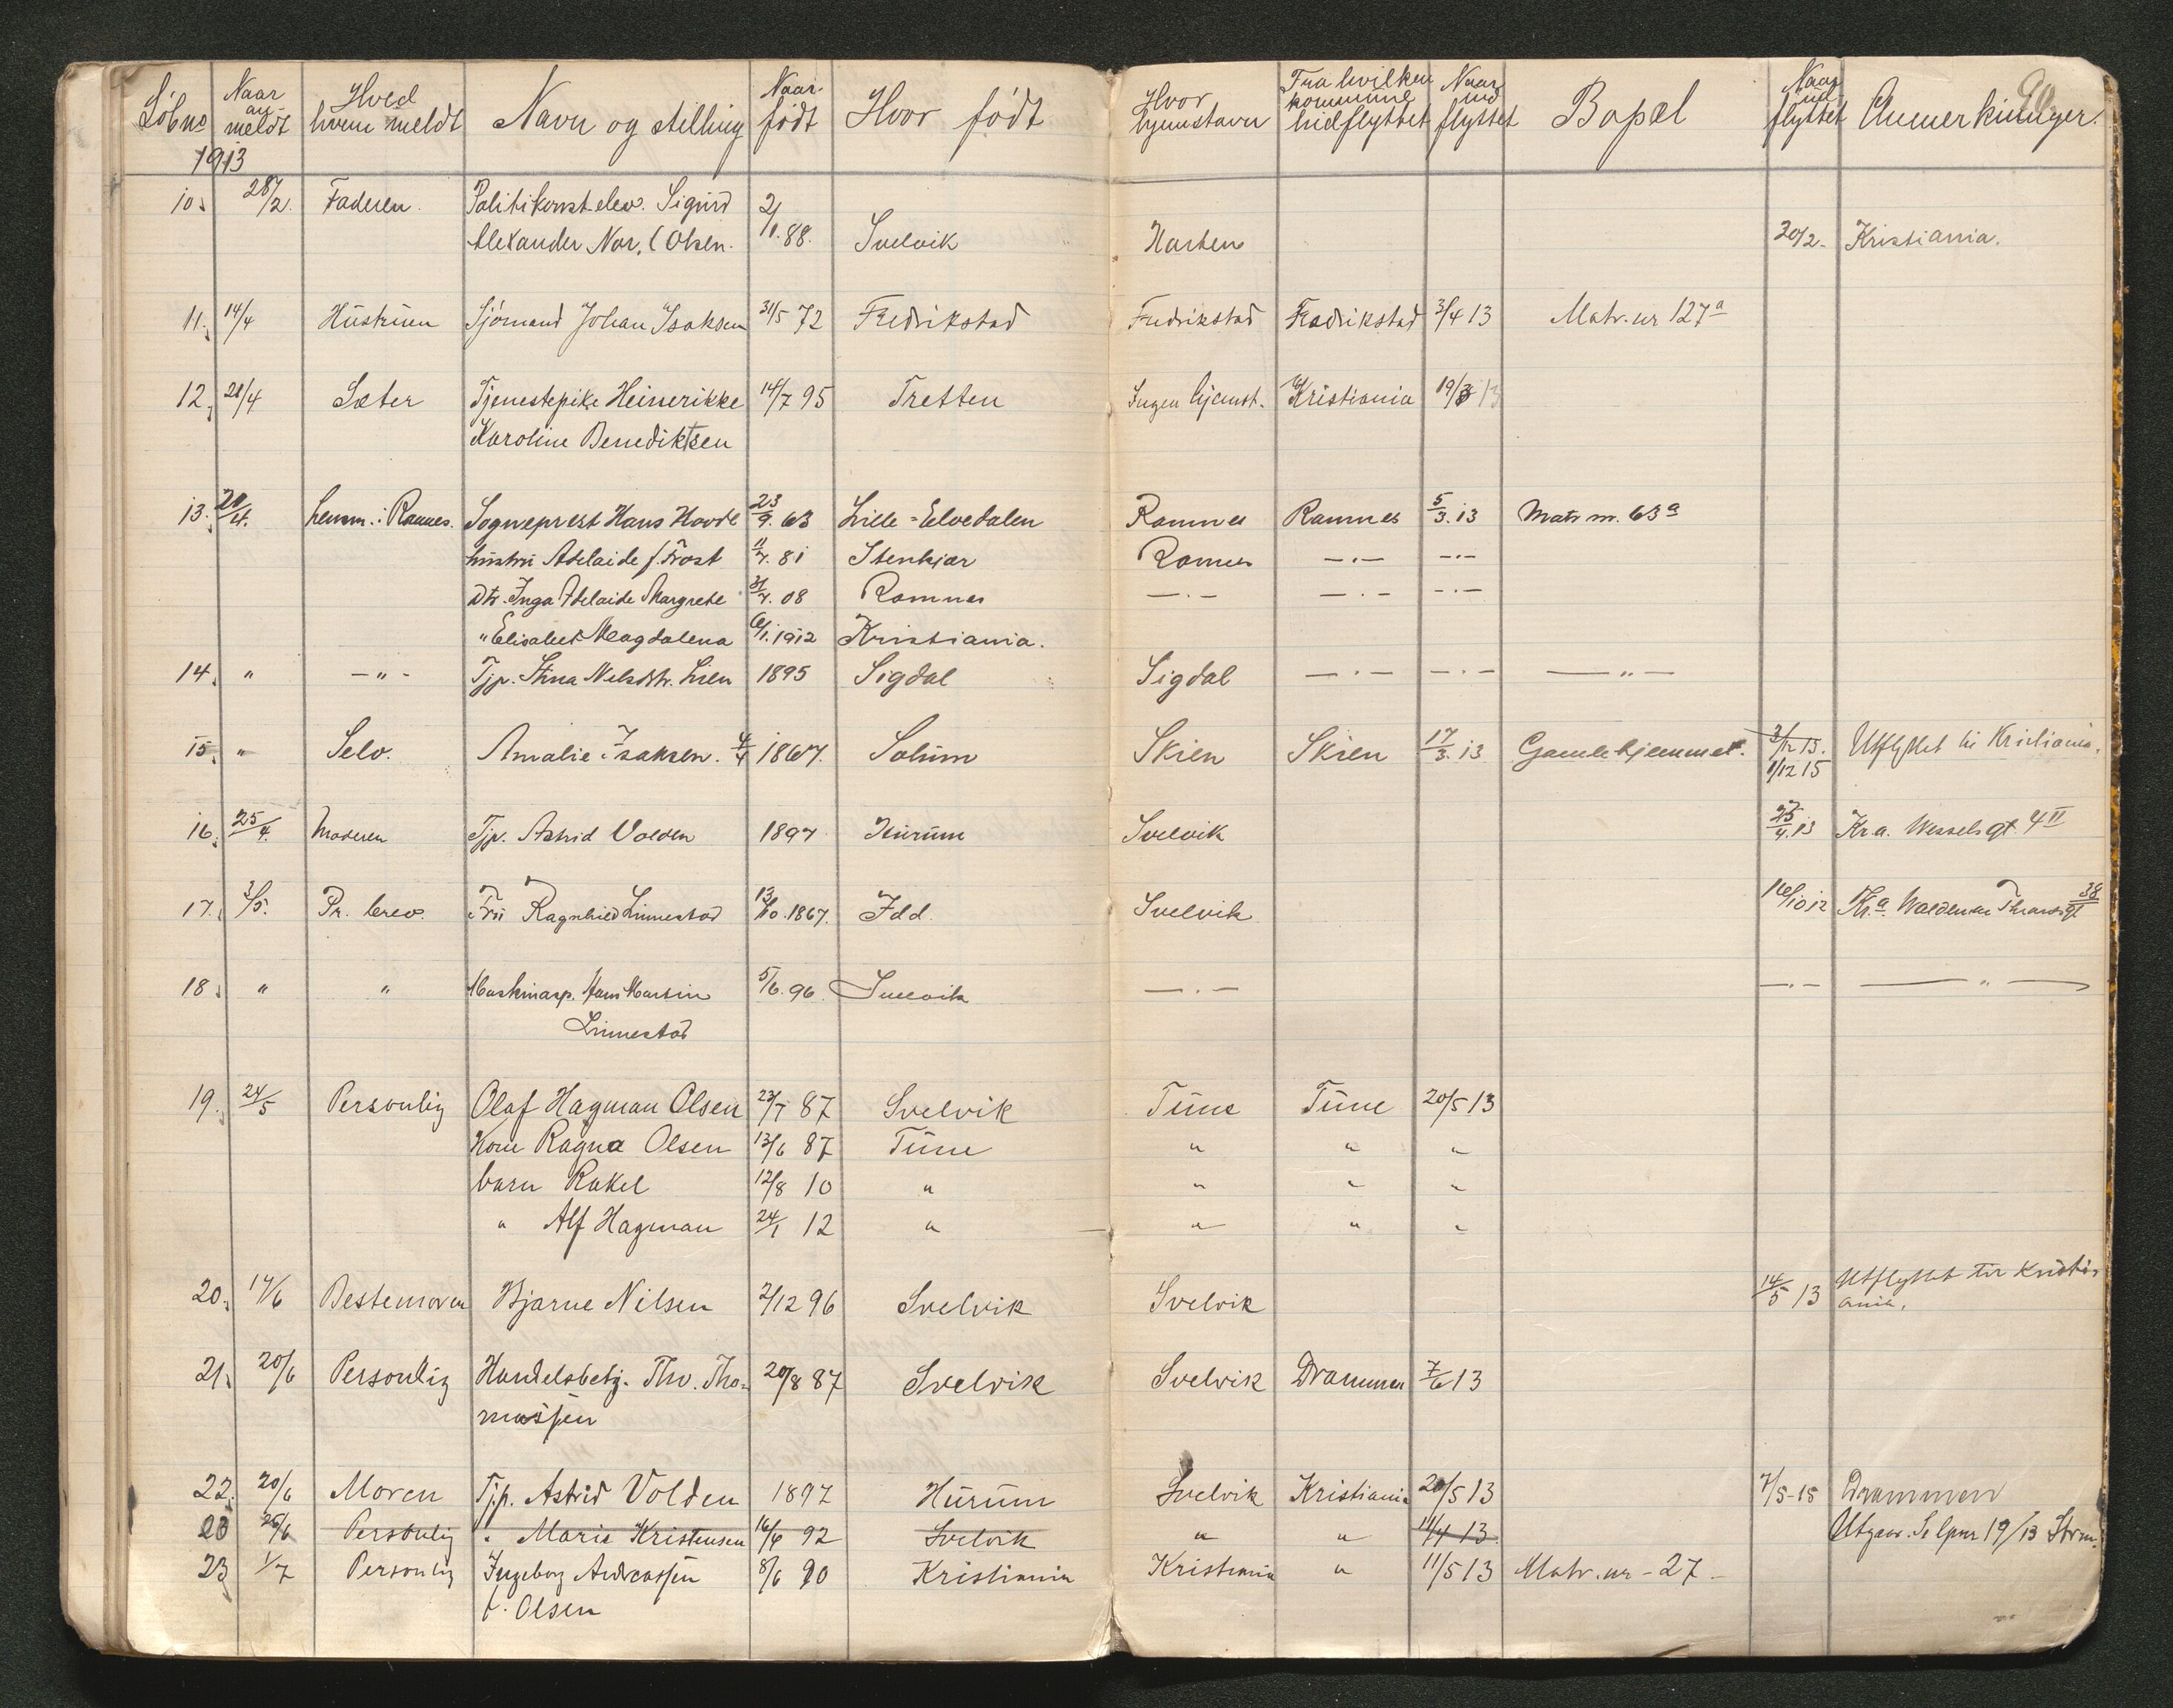 Løbno Naar an-meldt Hved hvem meldt Navn og stilling Naar født Hvor født Hvor hjemstavn Fra hvilken kommune hidflyttet Naar ind flyttet Bopæl Naar ud-flyttet Anmerkninger.
1913
10. 28/2. Faderen. Politikonst.elev. Sigurd 2/
Alexander Nor. Olsen. 1.88. Svelvik 20/2- Kristiania.
11. 14/4 Hustruen Sjømand Johan Isaksen 31/5 72 Fredrikstad Fredrikstad Fredrikstad 3/4 13 Matr. nr 127a
12. 21/4 Sæter Tjenestepike Heinerikke 14/7 95 Tretten Ingen hjemst. Kristiania 19/3 13
Karoline Benediktsen
13. 21/4. Lensm. i Ramnes. Sogneprest Hans Hovde 23/9. 63 Lille-Elvedalen Ramnes Ramnes 5/3. 13 Matr nr. 63a
hustru Adelaide f. Frost 11/7. 81 Stenkjær Ramnes —.— —.—
Dtr. Inga Adelaide Margrete 31/7. 08 Ramnes —.— —.— —.—
" Elisabet Magdalena 6/1. 1912 Kristiania.
14. " —"— Tjp. Stina Nelsdtr. Lien 1895 Sigdal Sigdal —.— —.— —"—
15. " Selv. Amalie Isaksen. 4/4 1867. Solum Skien Skien 17/3. 13 Gamlehjemmet. 3/12 15. Utflyttet til Kristiania.
1/12 15
16. 25/4. Moderen Tjp. Astrid Volden 1897 Hurum Svelvik 25/4. 13 Kr a. Wesselsgt. 4 II
17. 3/5. Pr. brev. Fru Ragnhild Linnestad 13/10. 1867. Idd. Svelvik 16/10 12 Kr.a Waldemar Thranesgt 38
18. " " Maskinasp. Hans Martin 5/6. 96. Svelvik —.— —.— —"—
Linnestad
19. 24/5 Personlig Olaf Hagman Olsen 23/7 87 Svelvik Tune Tune 20/5 13
Kone Ragna Olsen 13/6 87 Tune " " "
barn Rakel 12/8 10 " " " "
" Alf Hagman 24/1 12 " " " "
20. 14/6 Bestemoren Bjarne Nilsen 2/12 96 Svelvik Svelvik 14/5 13 Utflyttet til Kristi-
ania.
21. 20/6 Personlig Handelsbetj. Thv. Tho- 20/8 87 Svelvik Svelvik Drammen 7/6 13
massen
22. 20/6 Moren Tjp. Astrid Volden 1897 Hurum Svelvik Kristiania 20/5 13 7/5-15 Drammen
23 25/6 Personlig " Marie Kristensen 16/4 92 Svelvik " " 11/4 13 Utgaar. Se lpnr 19/13 Strm.
23 1/7 Personlig Ingeborg Andreassen 8/6 90 Kristiania Kristiania " 11/5 13 Matr. nr - 27 -
f. Olsen